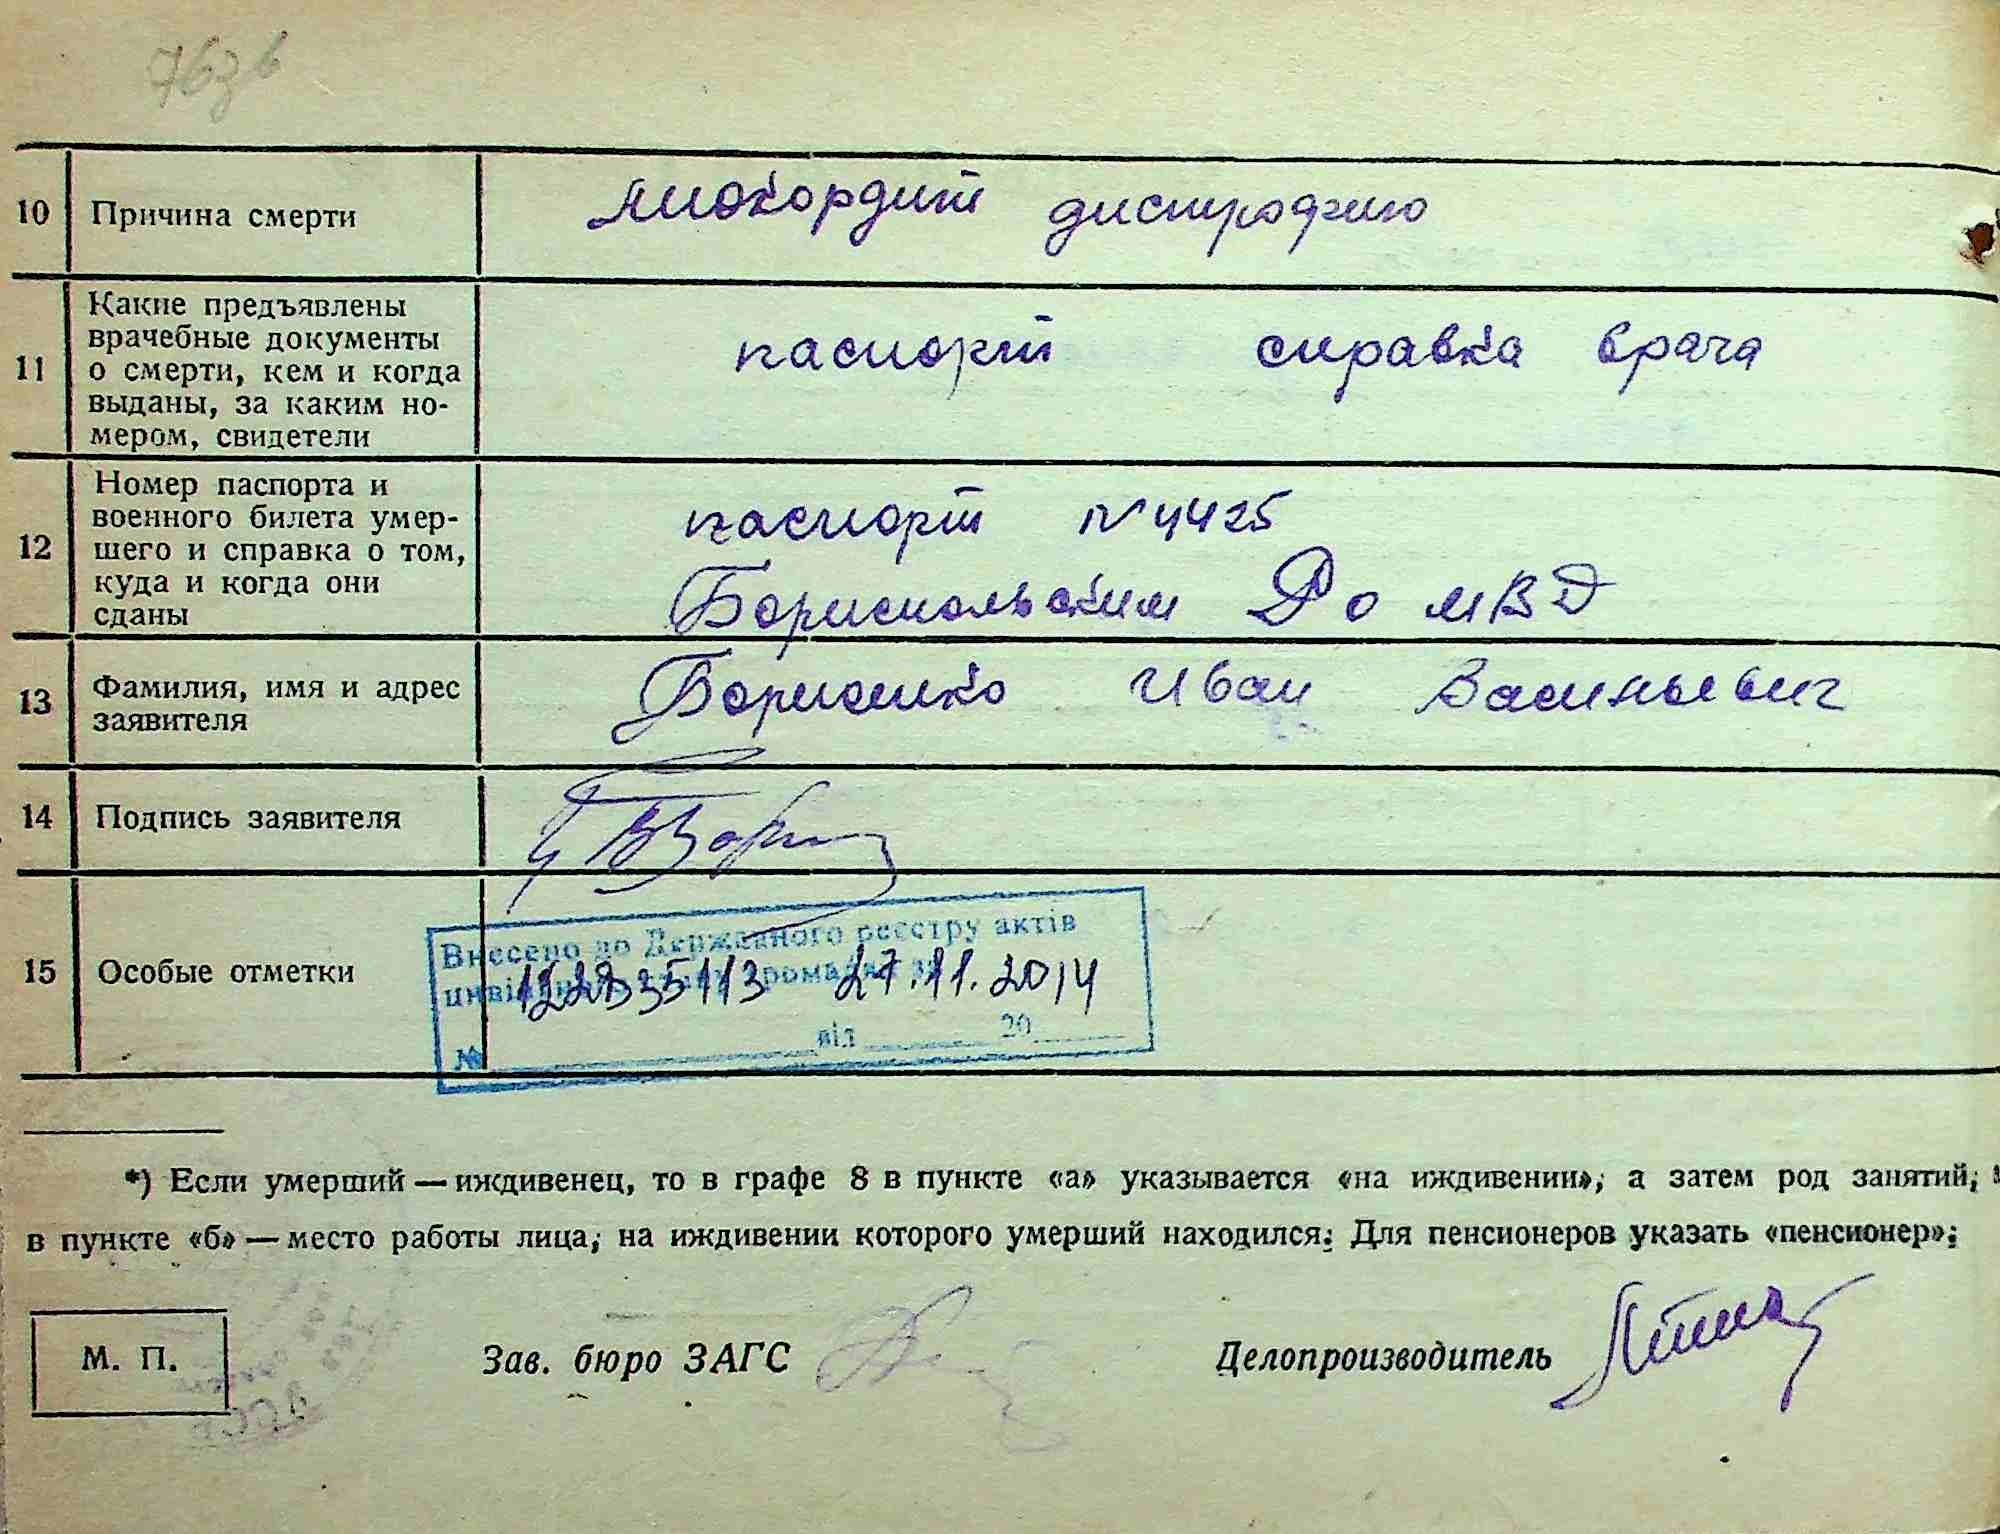 10 Причина смерти миокордит дистрофию
11 Какие предъявлены
врачебные документы
о смерти, кем и когда
выданы, за каким но-
мером, свидетели
паспорт справка врача
12 Номер паспорта и
военного билета умер-
шего и справка о том,
куда и когда они
сданы
паспорт N 4425
Бориспольским Ро МВД
13 Фамилия, имя и адрес
заявителя
Борисенко Иван Васильевич
14 Подпись заявителя
15 Особые отметки
Внесено до Державного реєстру актів
цивільного стану громадян за
27.11.2014
№ від 20
*) Если умерший — иждивенец, то в графе 8 в пункте «а» указывается «на иждивении», а затем род занятий;
в пункте «б» — место работы лица, на иждивении которого умерший находился. Для пенсионеров указать «пенсионер».
М. П. Зав. бюро ЗАГС Делопроизводитель